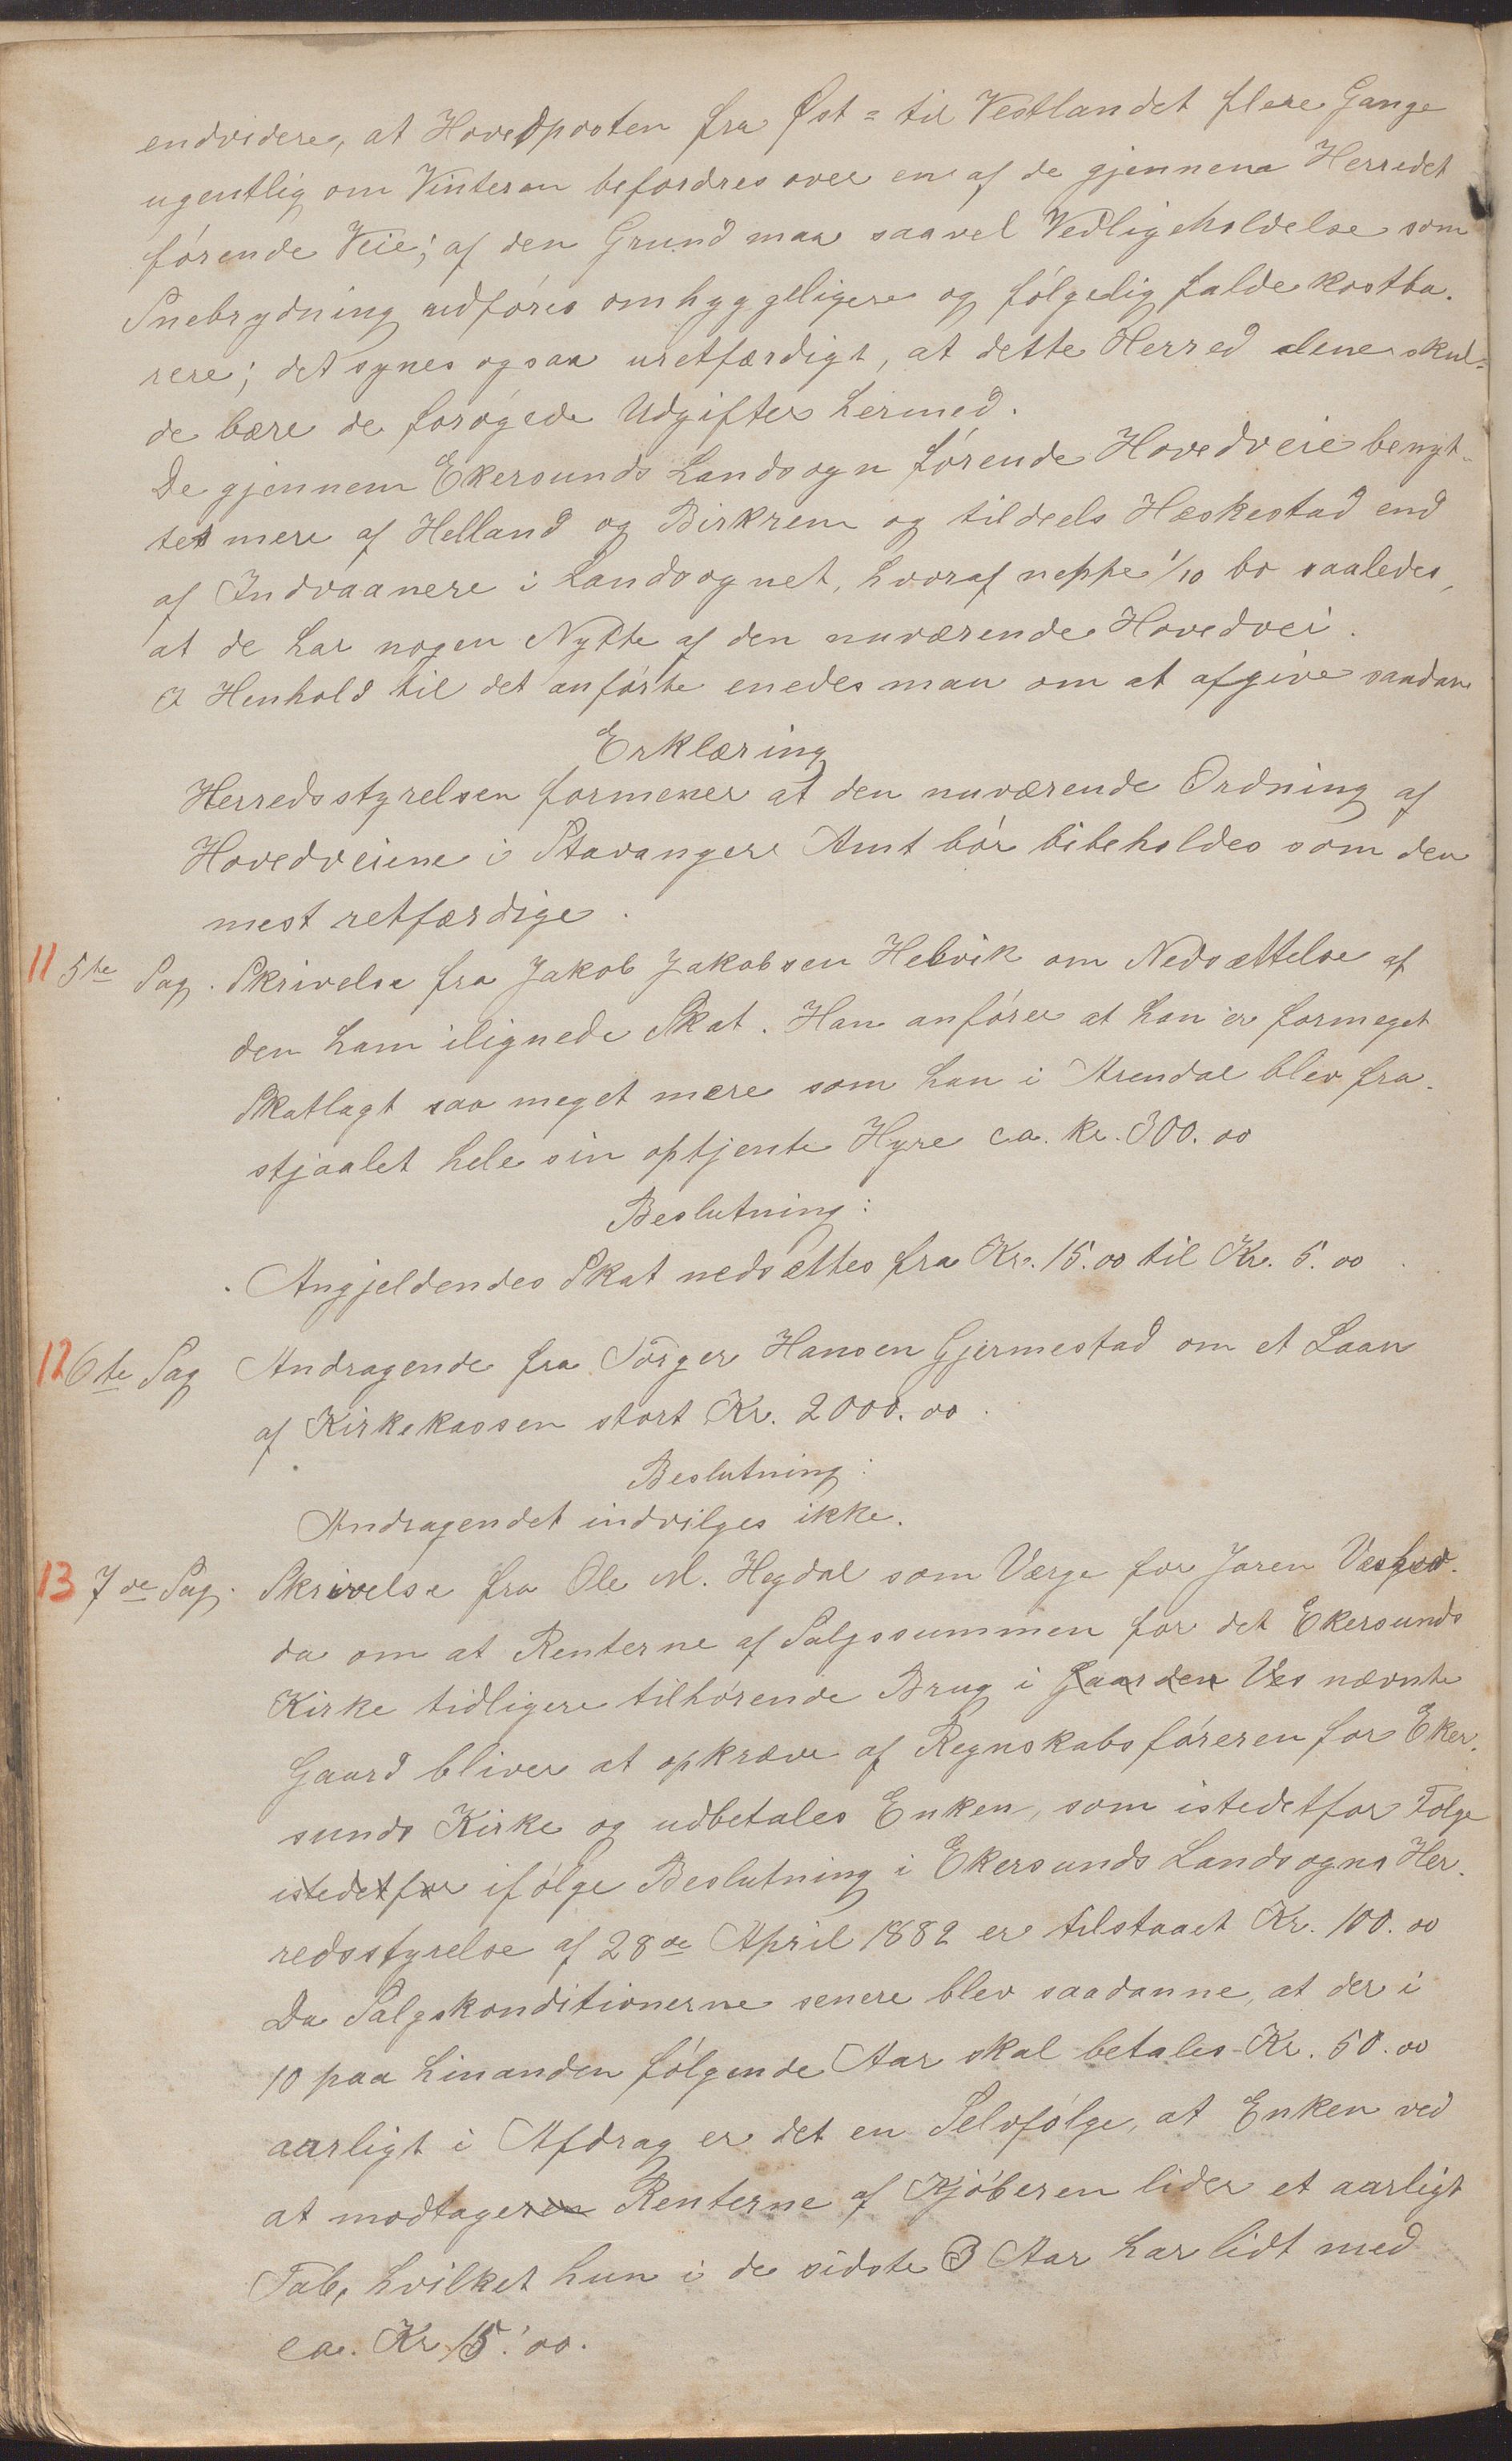 endvidere, at Hovedposten fra Øst= til Vestlandet flere Gange
ugentlig om Vinteren befordres over en af de gjennem Herredet
førende Veie; af den Grund maa saavel Vedligeholdelse som
Snebrydning udføres omhyggeligere og følgelig falde kostba-
rere; det synes ogsaa uretfærdigt, at dette Herred alene skul-
de bære de forøgede Udgifter hermed.
De gjennem Ekersunds Landsogn førende Hovedveie benyt-
tes mere af Helland og Birkrem og tildeels Heskestad end
af Indvaanere i Landsognet, hvoraf neppe 1/10 bo saaledes,
at de har nogen Nytte af den nuværende Hovedvei.
I Henhold til det anførte enedes man om at afgive saadan
Erklæring
Herredsstyrelsen formener at den nuværende Ordning af
Hovedveiene i Stavanger Amt bør bibeholdes som den
mest retfærdige.
11 5te Sag. Skrivelse fra Jakob Jakobsen Helvik om Nedsættelse af
den ham ilignede Skat. Han anfører at han er formeget
Skatlagt saa meget mere som han i Arendal blev fra-
stjaalet hele sin optjente Hyre ca. kr. 300.00
Beslutning:
Angjeldendes Skat nedsættes fra Kr. 15.00 til Kr. 5.00
12 6te Sag Andragende fra Torger Hansen Gjermestad om et Laan
af Kirkekassen stort Kr. 2000.00.
Beslutning:
Andragendet indvilges ikke.
13 7de Sag. Skrivelse fra Ole M. Hegdal som Værge for Jaren
da om at Renterne af Salgssummen for det Ekersunds
Kirke tidligere tilhørende Brug i Gaarden Ves nævnte
Gaard bliver at opkræve af Regnskabsføreren for Eker-
sunds Kirke og udbetales Enken, som istedetfor Følge
istedetfor ifølge Beslutning i Ekersunds Landsogns Her-
redsstyrelse af 28de April 1882 er tilstaaet Kr. 100.00
Da Salgskonditionerne senere blev saadanne, at der i
10 paa hinanden følgende Aar skal betales Kr. 50.00
aarligt i Afdrag er det en Selvfølge, at Enken ved
at modtageren Renterne af Kjøberen lider et aarligt
Tab, hvilket hun i de sidste 3 Aar har lidt med
ca. Kr 15.00.